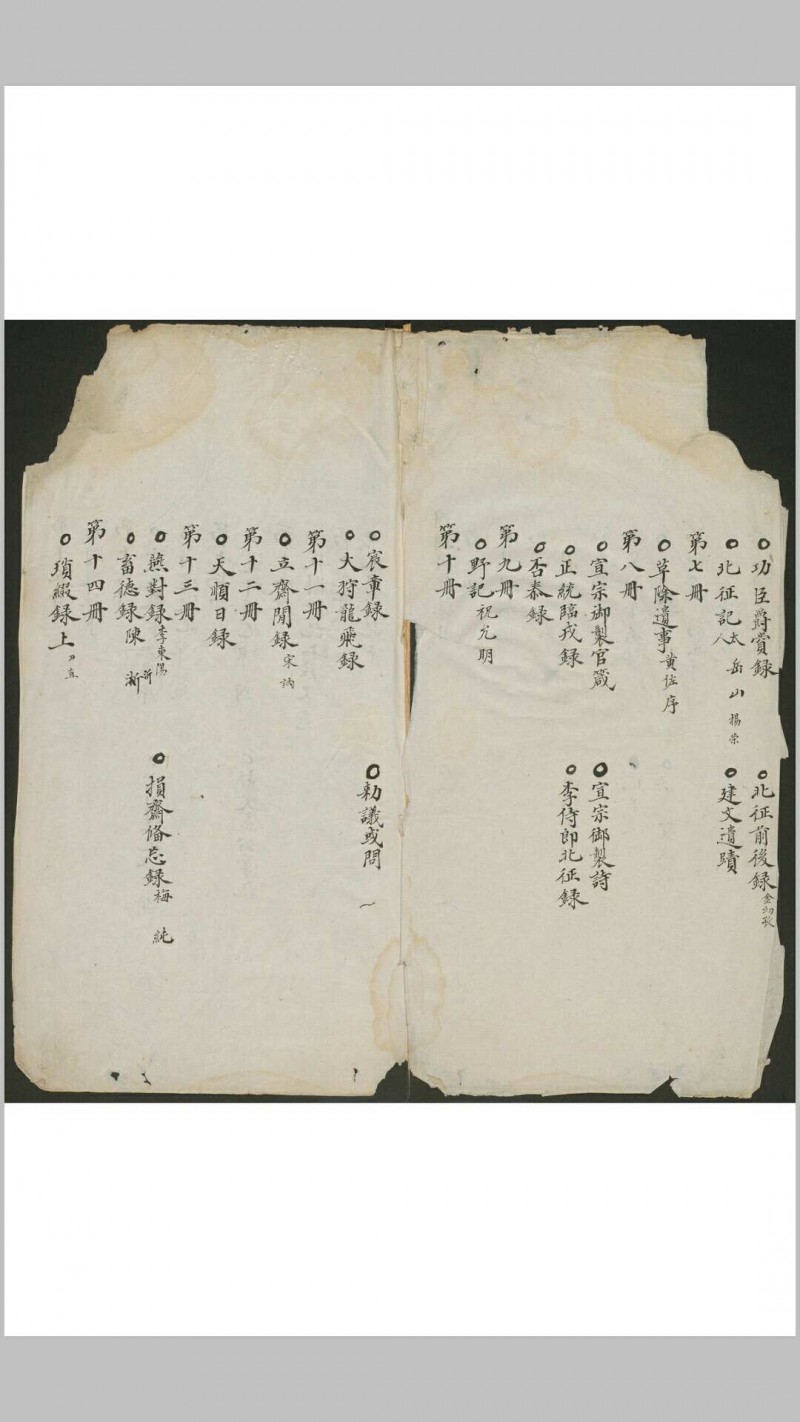 ○功臣爵賞録　○北征前後録金幼孜
○北征記太岳山人楊榮　○建文遺蹟
第七冊
○革除遺事黄佐序
第八冊
○宣宗御製官箴　○宣宗御製詩
○正統臨戎録　○李侍郎北征録
○否泰録
第九冊
○野記祝允明
第十冊
○宸章録　○勅議或問
○大狩龍飛録
第十一冊
○立齋閒録宋
第十二冊
○天順日録
第十三冊
○燕對録李東陽　○損齋備忘録梅純
○畜德録陳沂
第十四冊
○瑣綴録上尹直